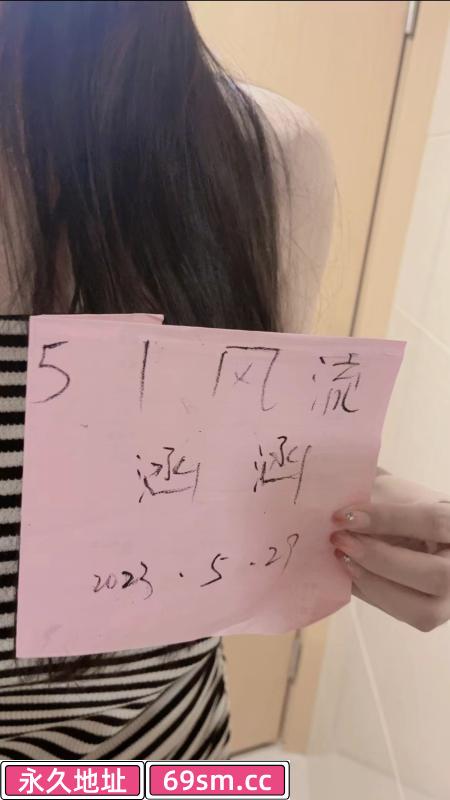 51风流
涵涵
2023.5.29
永久地址 69sm.cc